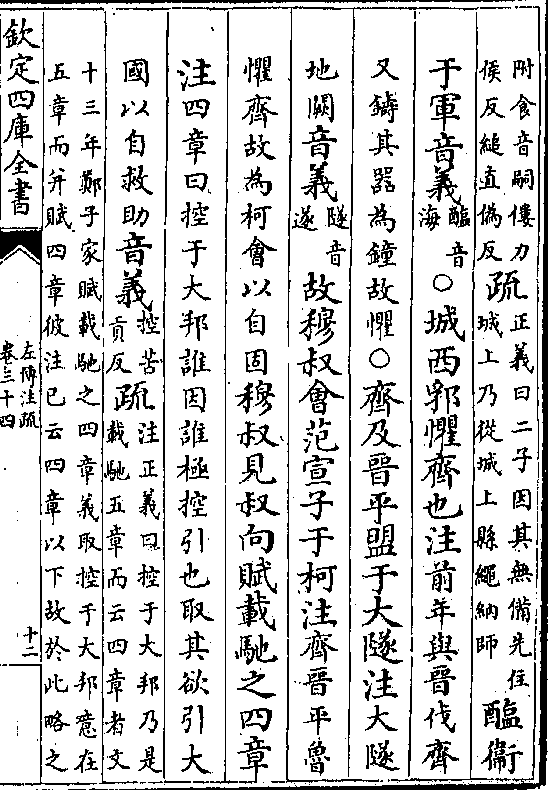 附食音嗣僂力
侯反縋直偽反
疏
正義曰二子因其無備先往
城上乃從城上縣繩納師
醢衛
于軍音義
醢音
海
○城西郛懼齊也注前年與晉伐齊
又鑄其器為鐘故懼○齊及晉平盟于大隧注大隧
地闕音義
隧音
遂
故穆叔會范宣子于柯注齊晉平魯
懼齊故為柯會以自固穆叔見叔向賦載馳之四章
注四章曰控于大邦誰因誰極控引也取其欲引大
國以自救助音義
控苦
貢反
疏
注正義曰控于大邦乃是
載馳五章而云四章者文
十三年鄭子家賦載馳之四章義取控于大邦意在
五章而并賦四章彼注已云四章以下故於此略之
欽定四庫全書
左傳注疏
卷三十四
十二